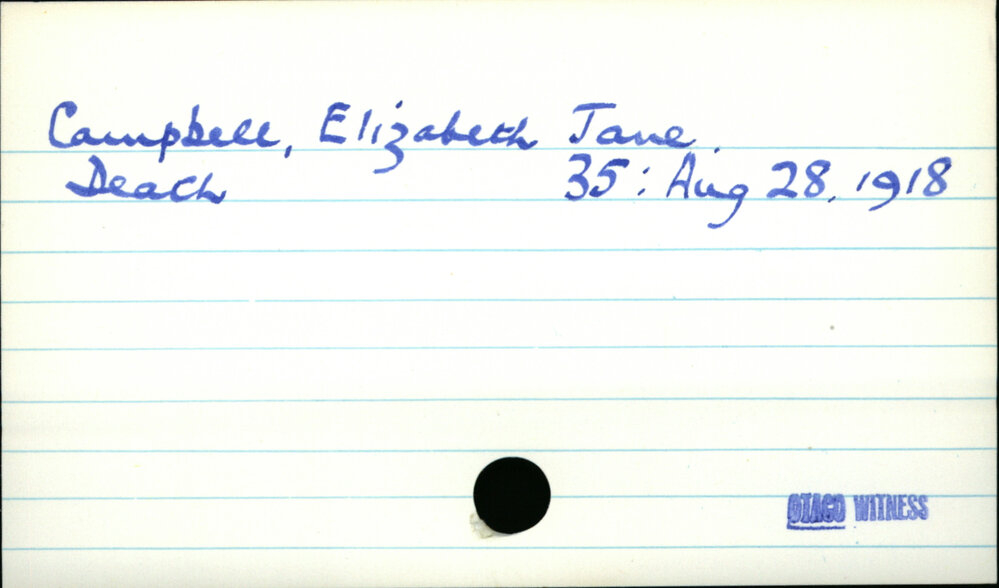 Campbell, Elizabeth Jane.
Death 35: Aug 28, 1918
OTAGO WITNESS